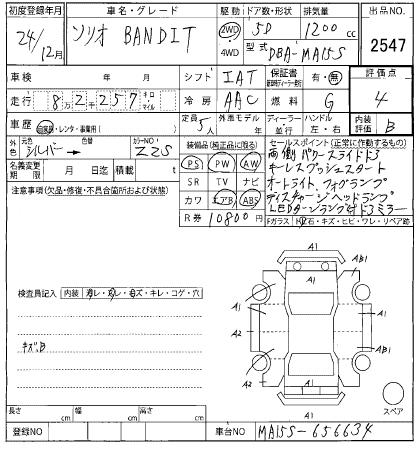 初度登録年月 車名・グレード 駆動 ドア数・形状 排気量 出品NO.
24/12月 ソリオ BANDIT 2WD 4WD 5D 1200cc 2547
型式 DBA-MA15S
車検 年 月 シフト IAT 保証書 有・無 評価点
走行 8万2千257キロ マイル 冷房 AAC 燃料 G 4
車歴 自家用・レンタ・事業用( ) 定員 5人 外車モデル 年 ディーラー・並行 ハンドル 左・右 内装評価 B
外色 元色 シルバー→ 色替 カラーNO. Z2S 装備品(純正品に限る) セールスポイント(正常に動作するもの)
名義変更期限 月 日迄 積載 t PS PW AW 両側パワースライドドア
注意事項(欠品・修復・不具合箇所および状態) SR TV ナビ キーレスプッシュスタート
カワ エアB ABS オートライト、フォグランプ
R券 10800円 ディスチャージヘッドランプ
LEDターンランプ付ドアミラー
Fガラス 飛石・キズ・ヒビ・ワレ・リペア跡
A1
AB1
検査員記入 内装 ヨゴレ・スレ・キズ・キレ・コゲ・穴
A1 A1
キズ、B
A2 AB1
A2 A1
A1 スペア
長さ cm 幅 cm 高さ cm
登録NO 車台NO MA15S-656634